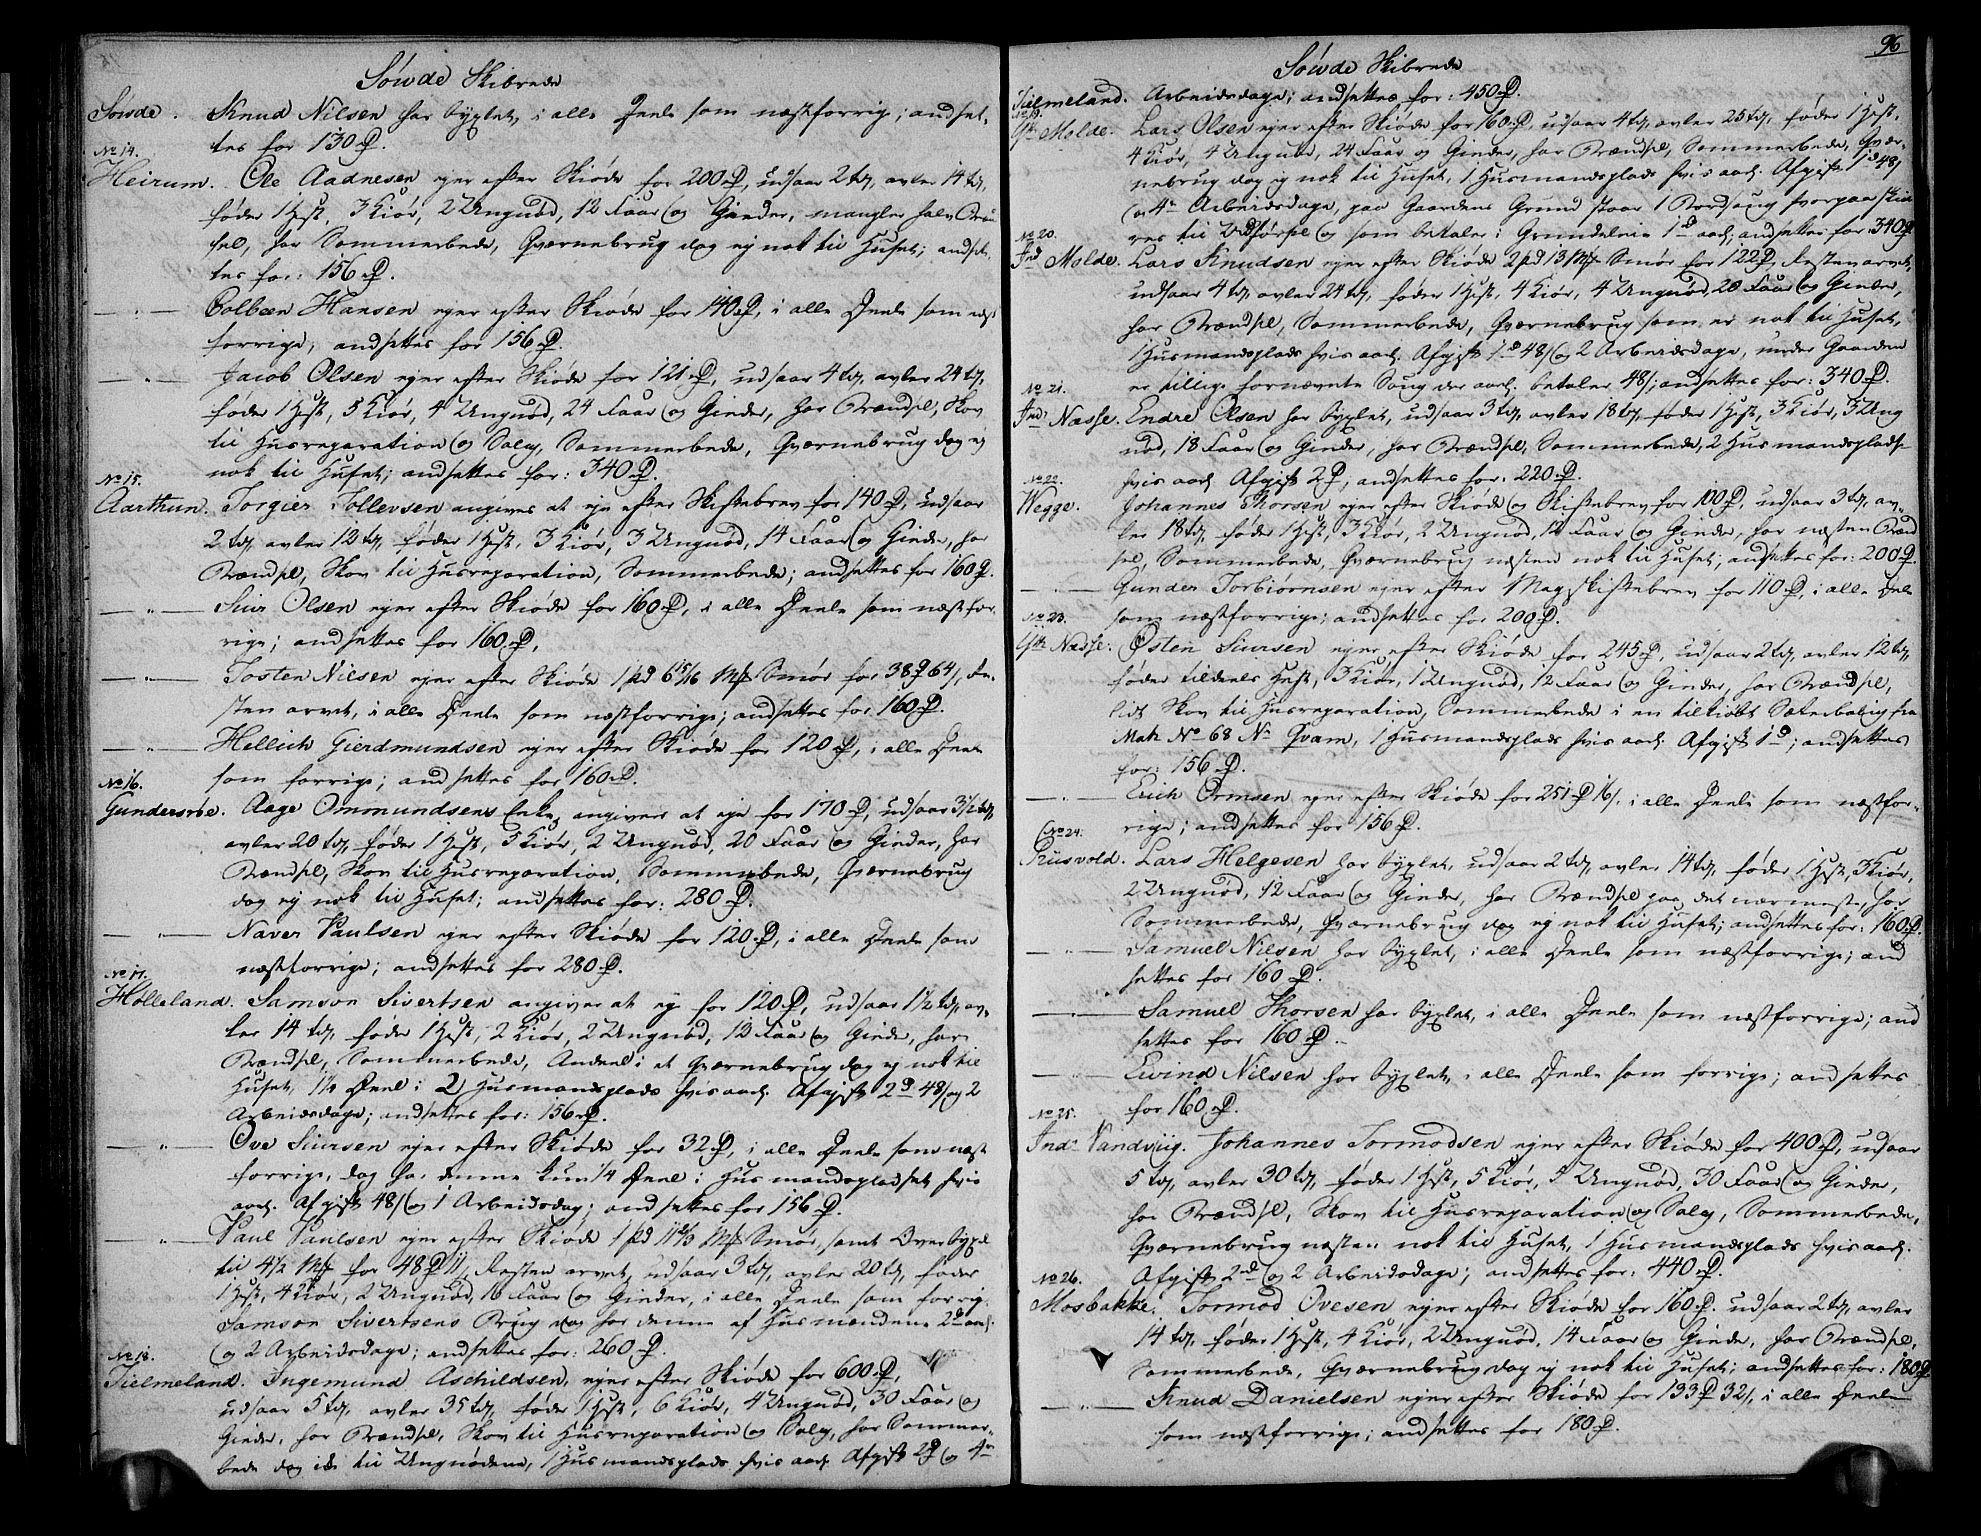 Søwde Skibrede
Søwde. Knud Nilsen har bÿxlet, i alle Deele som næstforrige; andsæt-
tes for 130 Rd.
No 14.
Heirum. Ole Aadnesen ejer efter Skiøde for 200 Rd, udsaar 2 tdr, avler 14 tdr,
føder 1 Hest, 3 Kiør, 2 Ungnød, 12 Faar og Gieder, mangler halv Brænd-
sel, har Sommerbede, Qværnebrug dog ej nok til Huset; andsæt-
tes for: 156 Rd.
— " — Colbeen Hansen ejer efter Skiøde for 140 Rd, i alle Deele som næst
forrige, andsættes for 156 Rd.
— " — Jacob Olsen ejer efter Skiøde for 121 Rd, udsaar 4 tdr, avler 24 tdr,
føder 1 Hest, 5 Kiør, 4 Ungnød, 24 Faar og Gieder, har Brændsel, Skov
til Husreparation og Salg, Sommerbede, Qværnebrug dog ej
nok til Huset; andsættes for: 340 Rd.
No 15.
Aarthun. Torgier Tollevsen angives at eje efter Skiftebrev for 140 Rd, udsaar
2 tdr, avler 12 tdr, føder 1 Hest, 3 Kiør, 3 Ungnød, 14 Faar og Gieder, har
Brændsel, Skov til Husreparation, Sommerbede; andsættes for 160 Rd.
— " — Siur Olsen ejer efter Skiøde for 160 Rd, i alle Deele som næstfor-
rige; andsættes for 160 Rd.
— " — Josten Nilsen ejer efter Skiøde 1 pd 6 15/16 Mk Smør for 38 Rd 64 s, Re-
sten arvet, i alle Deele som næstforrige; andsættes for 160 Rd.
— " — Hellich Gierdmundsen ejer efter Skiøde for 120 Rd, i alle Deele
som forrige; andsættes for 160 Rd.
No 16.
Gundersrøe. Aage Ommundsens Enke, angiver at eje for 170 Rd, udsaar 3 1/2 tdr,
avler 20 tdr, føder 1 Hest, 3 Kiør, 2 Ungnød, 20 Faar og Gieder, har
Brændsel, Skov til Husreparation, Sommerbede, Qværnebrug
dog ej nok til Huset; andsættes for: 280 Rd.
— " — Naver Paulsen ejer efter Skiøde for 120 Rd, i alle Deele som
næstforrige; andsættes for 280 Rd.
No 17.
Hølleland. Samson Sivertsen angiver at ej for 120 Rd, udsaar 1 1/2 tdr, av-
ler 14 tdr, føder 1 Hest, 2 Kiør, 2 Ungnød, 12 Faar og Gieder, har
Brændsel, Sommerbede, Andeel i et Qværnebrug dog ej nok til
Huset, Deel i 2 Husmandsplads hvis aarl. Afgift 2 d 48 s og 2
Arbeidsdage; andsættes for: 156 Rd.
— " — Ove Siursen ejer efter Skiøde for 32 Rd, i alle Deele som næst
forrige, dog har denne kun 1/4 Deel i Husmandspladset hvis
aarl. Afgift 48 s og 1 Arbeidsdag; andsættes for 156 Rd.
— " — Paul Paulsen ejer efter Skiøde 1 pd Mk Smør, samt Overbÿxel
til 4 1/2 Mk for 48 Rd, Resten arvet, udsaar 3 tdr, avler 20 tdr, føder
1 Hest, 4 Kiør, 2 Ungnød, 16 Faar og Gieder, i alle Deele som forrige
Samson Sivertsens Brug dog har denne af Husmændene 2 d aarl.
og 2 Arbeidsdage; andsættes for: 260 Rd.
No 18.
Tielmeland. Ingemund Aschildsen, ejer efter Skiøde for 600 Rd,
udsaar 5 tdr, avler 35 tdr, føder 1 Hest, 6 Kiør, 4 Ungnød, 30 Faar og
Gieder, har Brændsel, Skov til Husreparation og Salg, har Sommer-
bede dog ikke til Ungnødene, 1 Husmandsplads hvis aarl. Afgift 2 Rd og 4re
96
Søwde Skibrede
Tielmeland. Arbeidsdage; andsættes for: 450 Rd.
No 19.
Ytr Molde. Lars Olsen ejer efter Skiøde for 160 Rd, udsaar 4 tdr, avler 25 tdr, føder 1 Hest,
4 Kiør, 4 Ungnød, 24 Faar og Gieder, har Brændsel, Sommerbede, Qvær-
nebrug dog ej nok til Huset, 1 Husmandsplads hvis aarl. Afgift 1 d 48 s
og 4re Arbeidsdage, paa Gaardens Grund staar 1 Bordsaug hvorpaa skiæ-
res til Udførsel og som betaler i Grundeleie 1 d aarl; andsættes for: 340 Rd.
No 20.
Indr Molde. Lars Knudsen ejer efter Skiøde 2 pd 13 Mk Smør for 122 Rd, Resten arvet,
udsaar 4 tdr, avler 24 tdr, føder 1 Hest, 4 Kiør, 4 Ungnød, 20 Faar og Gieder,
har Brændsel, Sommerbede, Qværnebrug som er nok til Huset,
1 Husmandsplads hvis aarl. Afgift 1 d 48 s og 2 Arbeidsdage, under Gaarden
er tillige fornævnte Saug der aarl. betaler 48 s; andsættes for: 340 Rd.
No 21.
Indr Næsse. Endre Olsen har bÿxlet, udsaar 3 tdr, avler 18 tdr, føder 1 Hest, 3 Kiør, 3 Ung
nød, 18 Faar og Gieder, har Brændsel, Sommerbede, 2 Husmandspladse
hvis aarl. Afgift 2 Rd, andsættes for: 220 Rd.
No 22.
Wegge. Johannes Thorsen ejer efter Skiøde og Skiftebrev for 100 Rd, udsaar 3 tdr, av-
ler 18 tdr, føder 1 Hest, 3 Kiør, 2 Ungnød, 12 Faar og Gieder, har næsten Brænd
sel, Sommerbede, Qværnebrug næsten nok til Huset; andsættes for: 200 Rd.
— " — Gunder Torbiørnsen ejer efter Magskiftebrev for 110 Rd, i alle Deele
som næstforrige; andsættes for 200 Rd.
No 23.
Ytr Næsse. Østen Siursen ejer efter Skiøde for 245 Rd, udsaar 2 tdr, avler 12 tdr,
føder tildeels Hest, 3 Kiør, 1 Ungnød, 12 Faar og Gieder, har Brændsel,
lidt Skov til Husreparation, Sommerbede i en tilkiøbt Sæterbolig fra
Matr No 68 Nr Qvam, 1 Husmandsplads hvis aarl. Afgift 1 d; andsættes
for: 156 Rd.
— " — Erich Ormsen ejer efter Skiøde for 251 Rd 16 s. i alle Deele som næstfor-
rige; andsættes for 156 Rd.
No 24.
Priisvold. Lars Helgesen har bÿxlet, udsaar 2 tdr, avler 14 tdr, føder 1 Hest, 3 Kiør,
2 Ungnød, 12 Faar og Gieder, har Brændsel paa det nærmeste, har
Sommerbede, Qværnebrug dog ej nok til Huset; andsættes for: 160 Rd.
— " — Samuel Nilsen har bÿxlet, i alle Deele som næstforrige; and
sættes for 160 Rd.
— " — Samuel Thorsen har bÿxlet, i alle Deele som næstforrige; and
sættes for 160 Rd.
— " — Eivind Nilsen har bÿxlet, i alle Deele som forrige; andsættes
for 160 Rd.
No 25.
Indr Vandviig. Johannes Tormodsen ejer efter Skiøde for 400 Rd, udsaar
5 tdr, avler 30 tdr, føder 1 Hest, 5 Kiør, 3 Ungnød, 30 Faar og Gieder,
har Brændsel, Skov til Husreparation og Salg, Sommerbede,
Qværnebrug næsten nok til Huset, 1 Husmandsplads hvis aarl.
Afgift 2 rd og 2 Arbeidsdage; andsættes for: 440 Rd.
No 26.
Mosbakke. Tormod Ovesen ejer efter Skiøde for 160 Rd. udsaar 2 tdr, avler
14 tdr, føder 1 Hest, 4 Kiør, 2 Ungnød, 14 Faar og Gieder, har Brændsel,
Sommerbede, Qværnebrug dog ej nok til Huset; andsættes for: 180 Rd
— " — Knud Danielsen ejer efter Skiøde for 193 Rd 32 s, i alle Deele
som næstforrige; andsættes for 180 Rd.